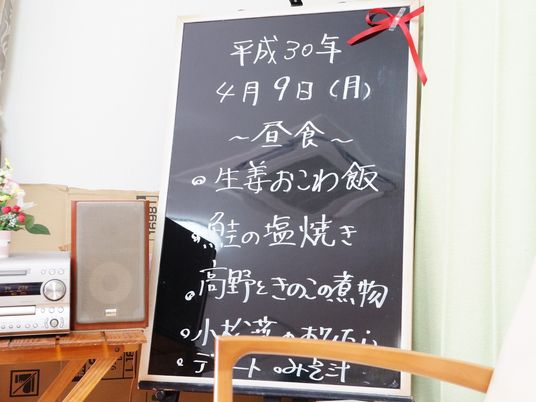 平成30年
4月9日(月)
～昼食～
生姜おこわ飯
鮭の塩焼き
高野ときのこの煮物
小松菜の
デザート みそ汁